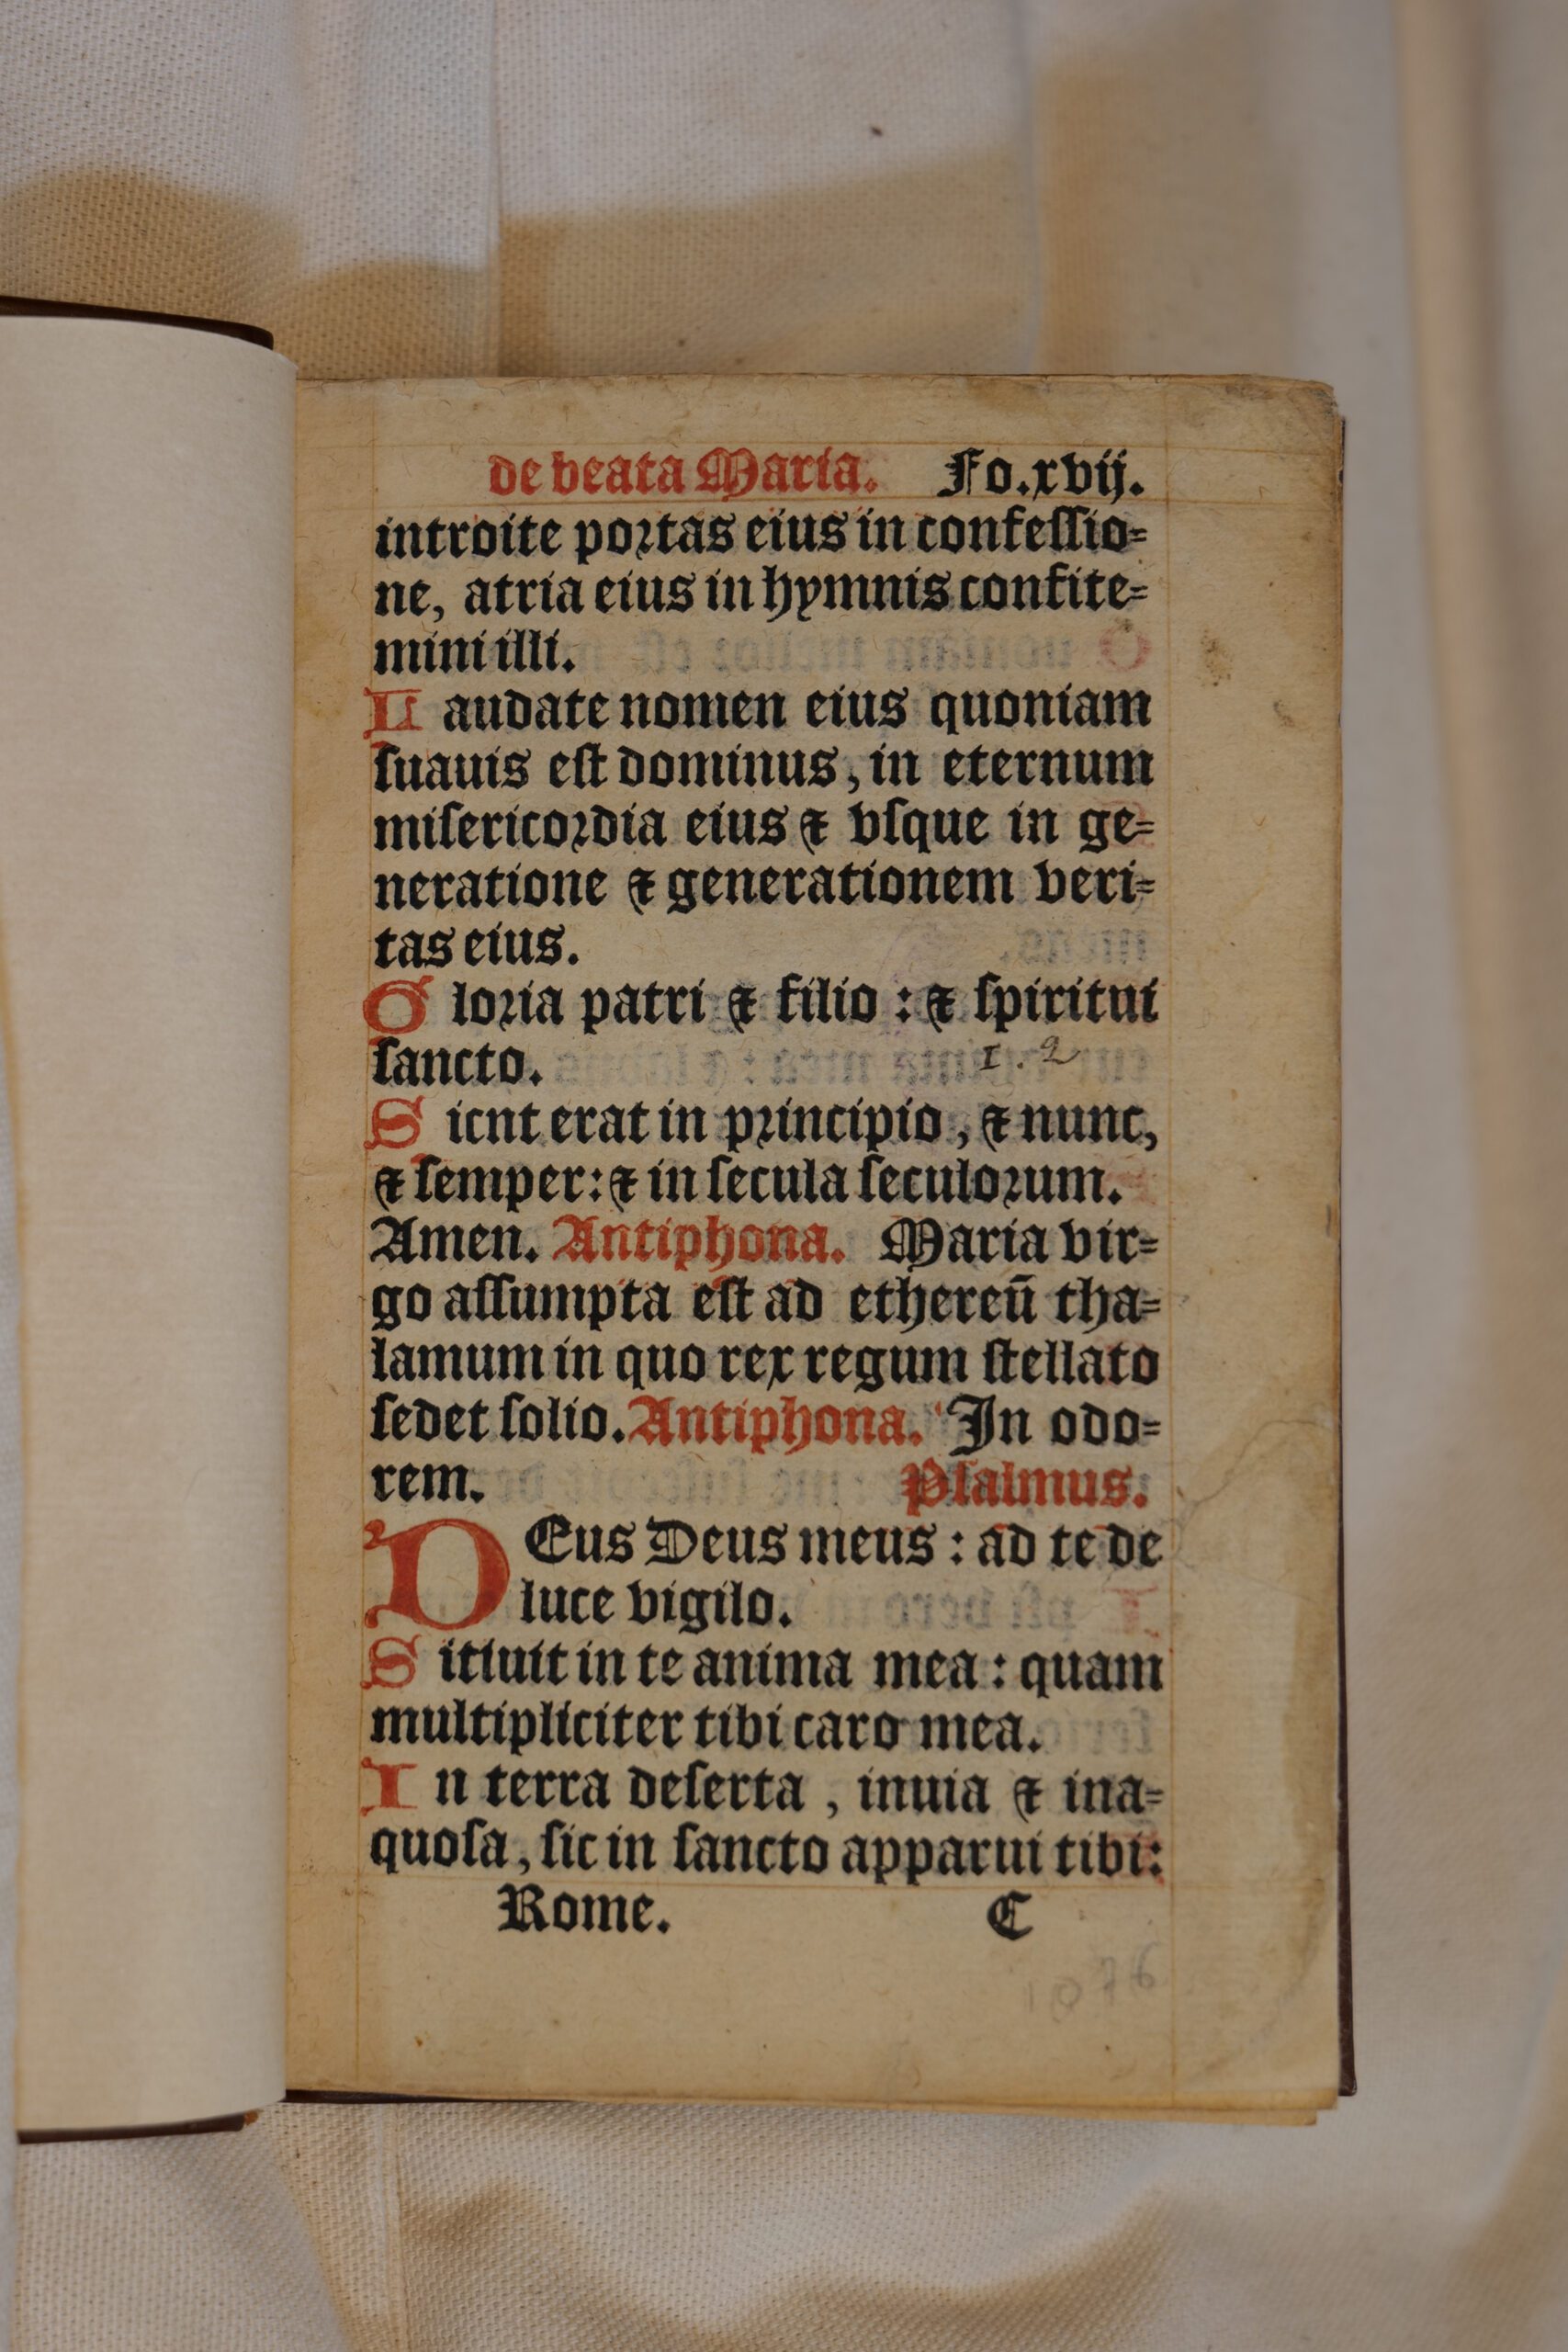 de beata Maria. Fo.xvij.
introite portas eius in confessio=
ne, atria eius in hymnis confite=
mini illi.
L audate nomen eius quoniam
suauis est dominus, in eternum
misericordia eius & vsque in ge=
neratione & generationem veri=
tas eius.
G loria patri & filio : & spiritui
sancto.
1. 2
S icnt erat in principio, & nunc,
& semper: & in secula seculorum.
Amen. Antiphona. Maria vir=
go assumpta est ad ethereū tha=
lamum in quo rex regum stellato
sedet solio. Antiphona. In odo=
rem. Psalmus.
DEus Deus meus : ad te de
luce vigilo.
S itiuit in te anima mea : quam
multipliciter tibi caro mea.
I n terra deserta, inuia & ina=
quosa, sic in sancto apparui tibi:
Rome. C
1076